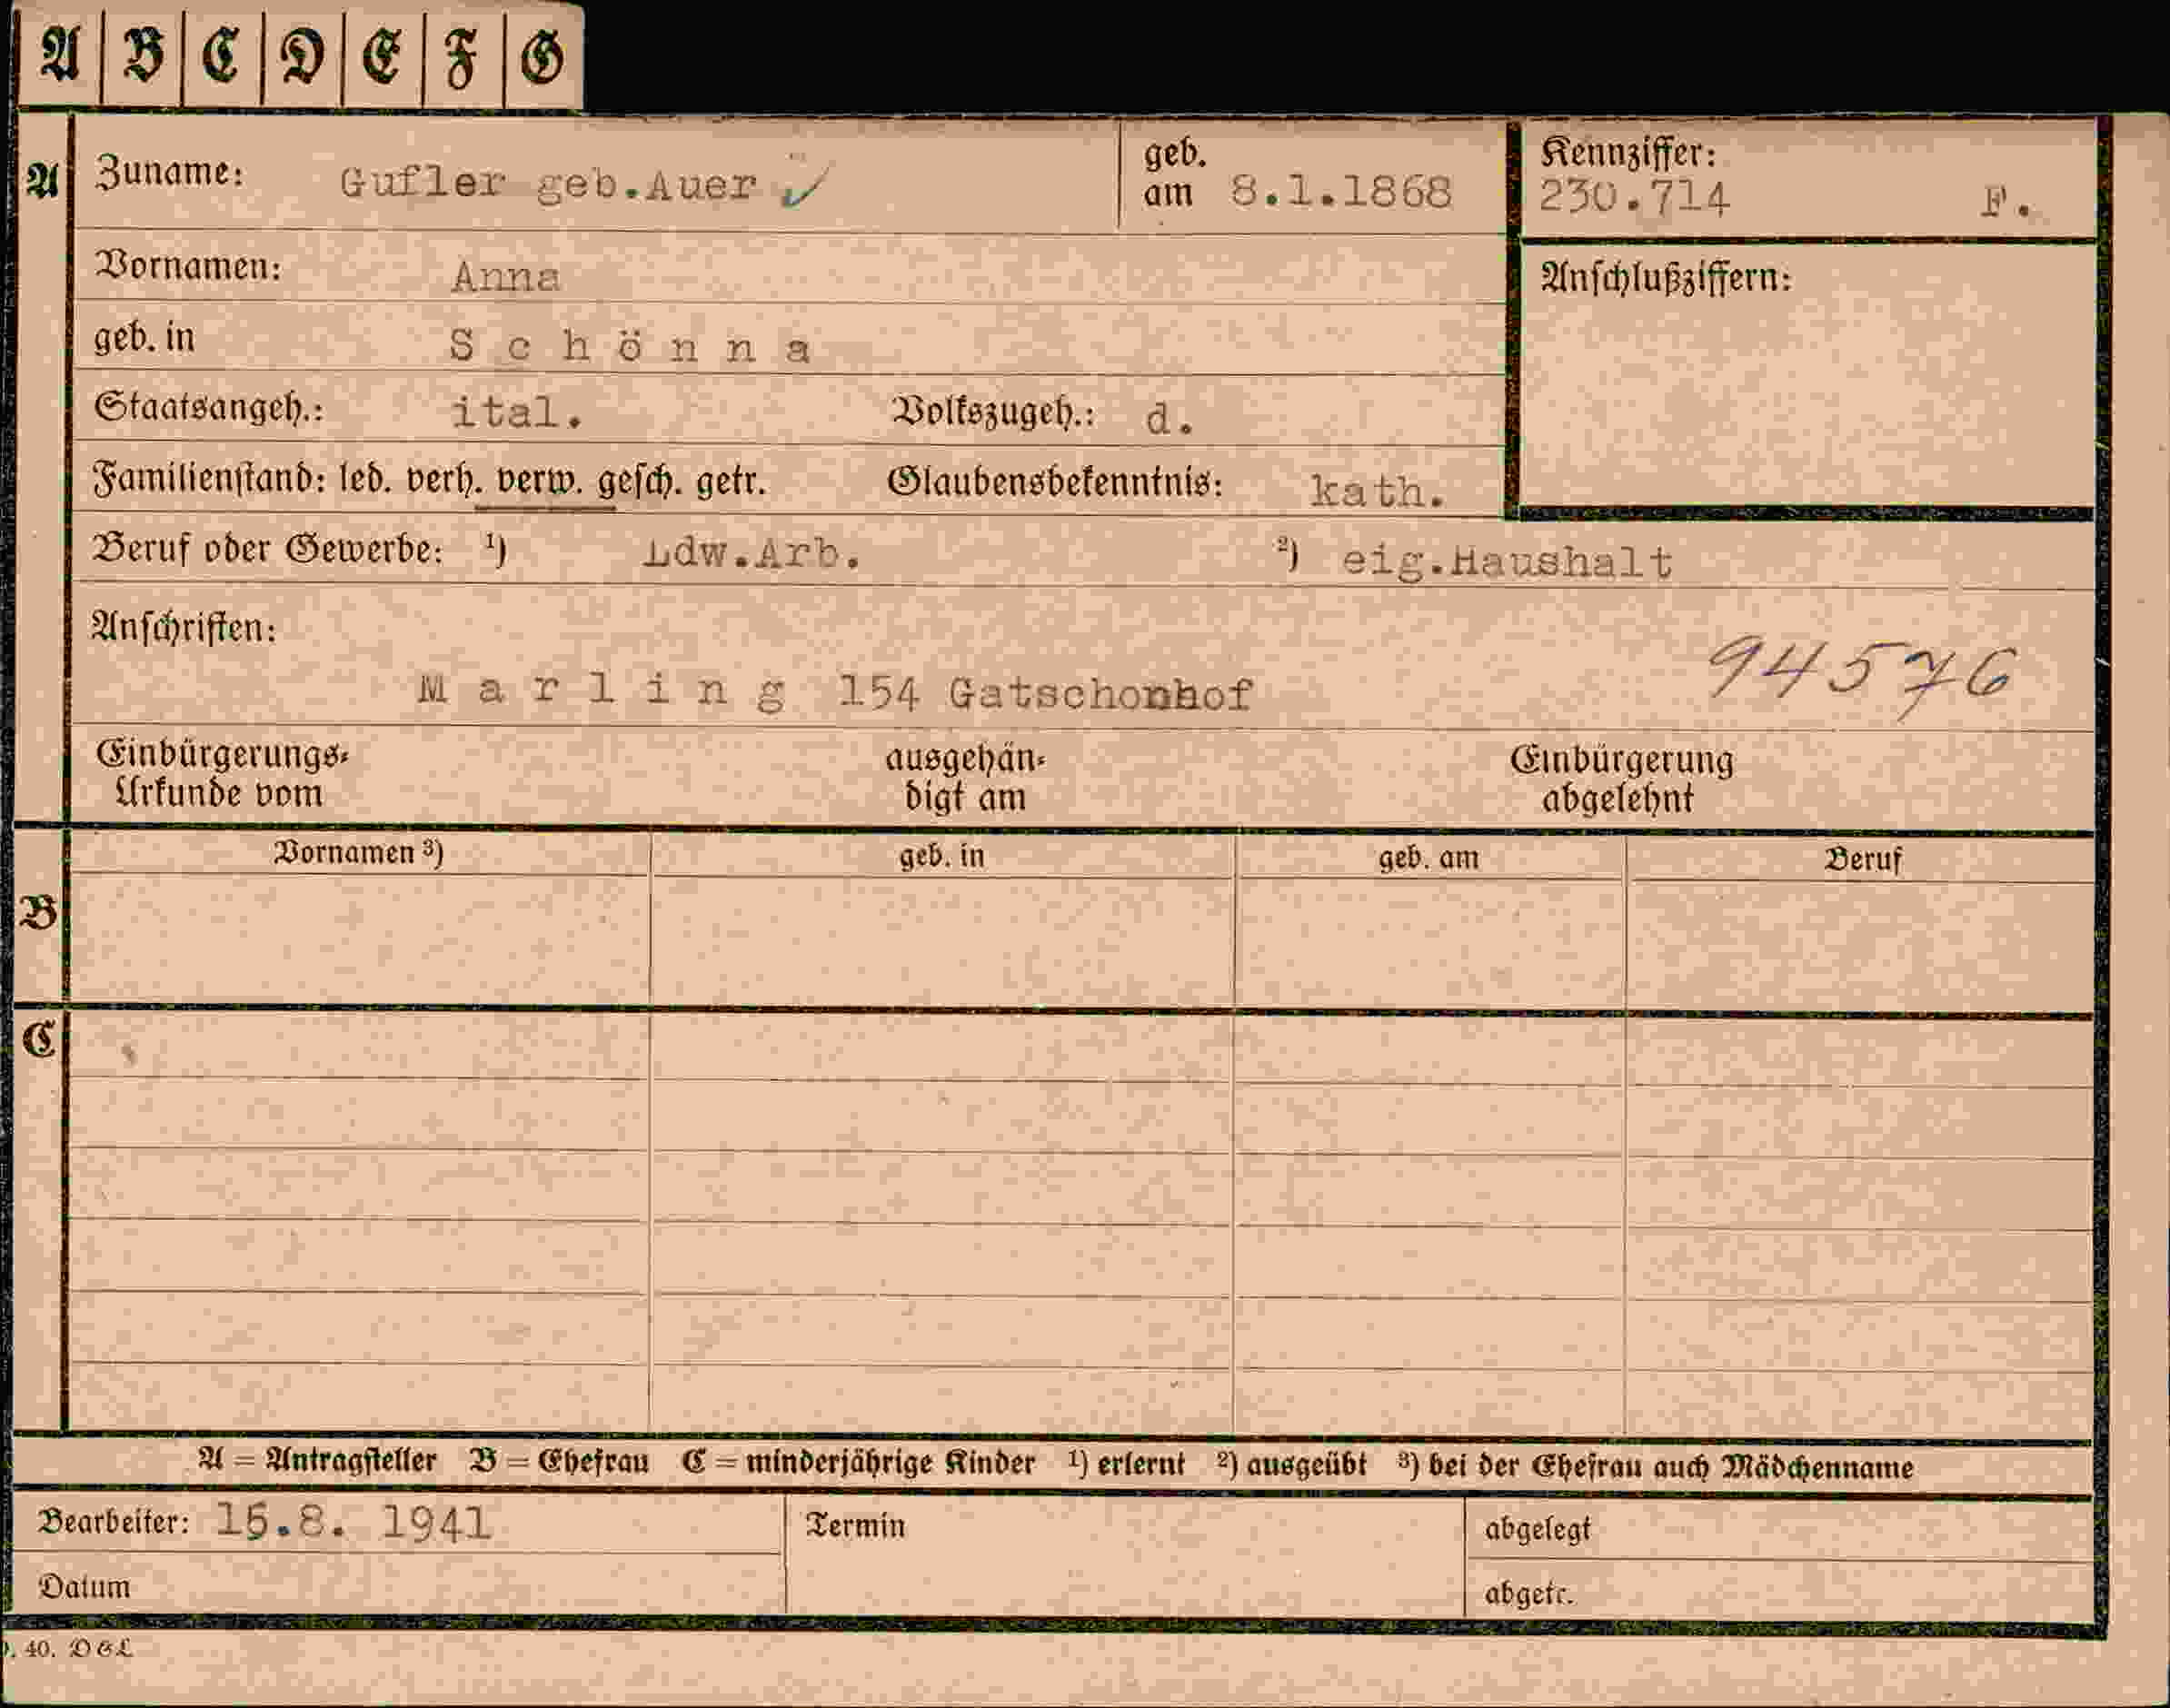 A B C D E F G
A Zuname: Gufler geb.Auer ✓ geb. am 8.1.1868 Kennziffer: 230.714 F.
Vornamen: Anna Anschlußziffern:
geb. in Schönna
Staatsangeh.: ital. Volkszugeh.: d.
Familienstand: led. verh. verw. gesch. getr. Glaubensbekenntnis: kath.
Beruf oder Gewerbe: ¹) Ldw.Arb. ²) eig.Haushalt
Anschriften:
Marling 154 Gatschonhof 94576
Einbürgerungs- ausgehän- Einbürgerung
Urkunde vom digt am abgelehnt
Vornamen ³) geb. in geb. am Beruf
B
C
A = Antragsteller B = Ehefrau C = minderjährige Kinder ¹) erlernt ²) ausgeübt ³) bei der Ehefrau auch Mädchenname
Bearbeiter: 15.8. 1941 Termin abgelegt
Datum abgetr.
40. D G L